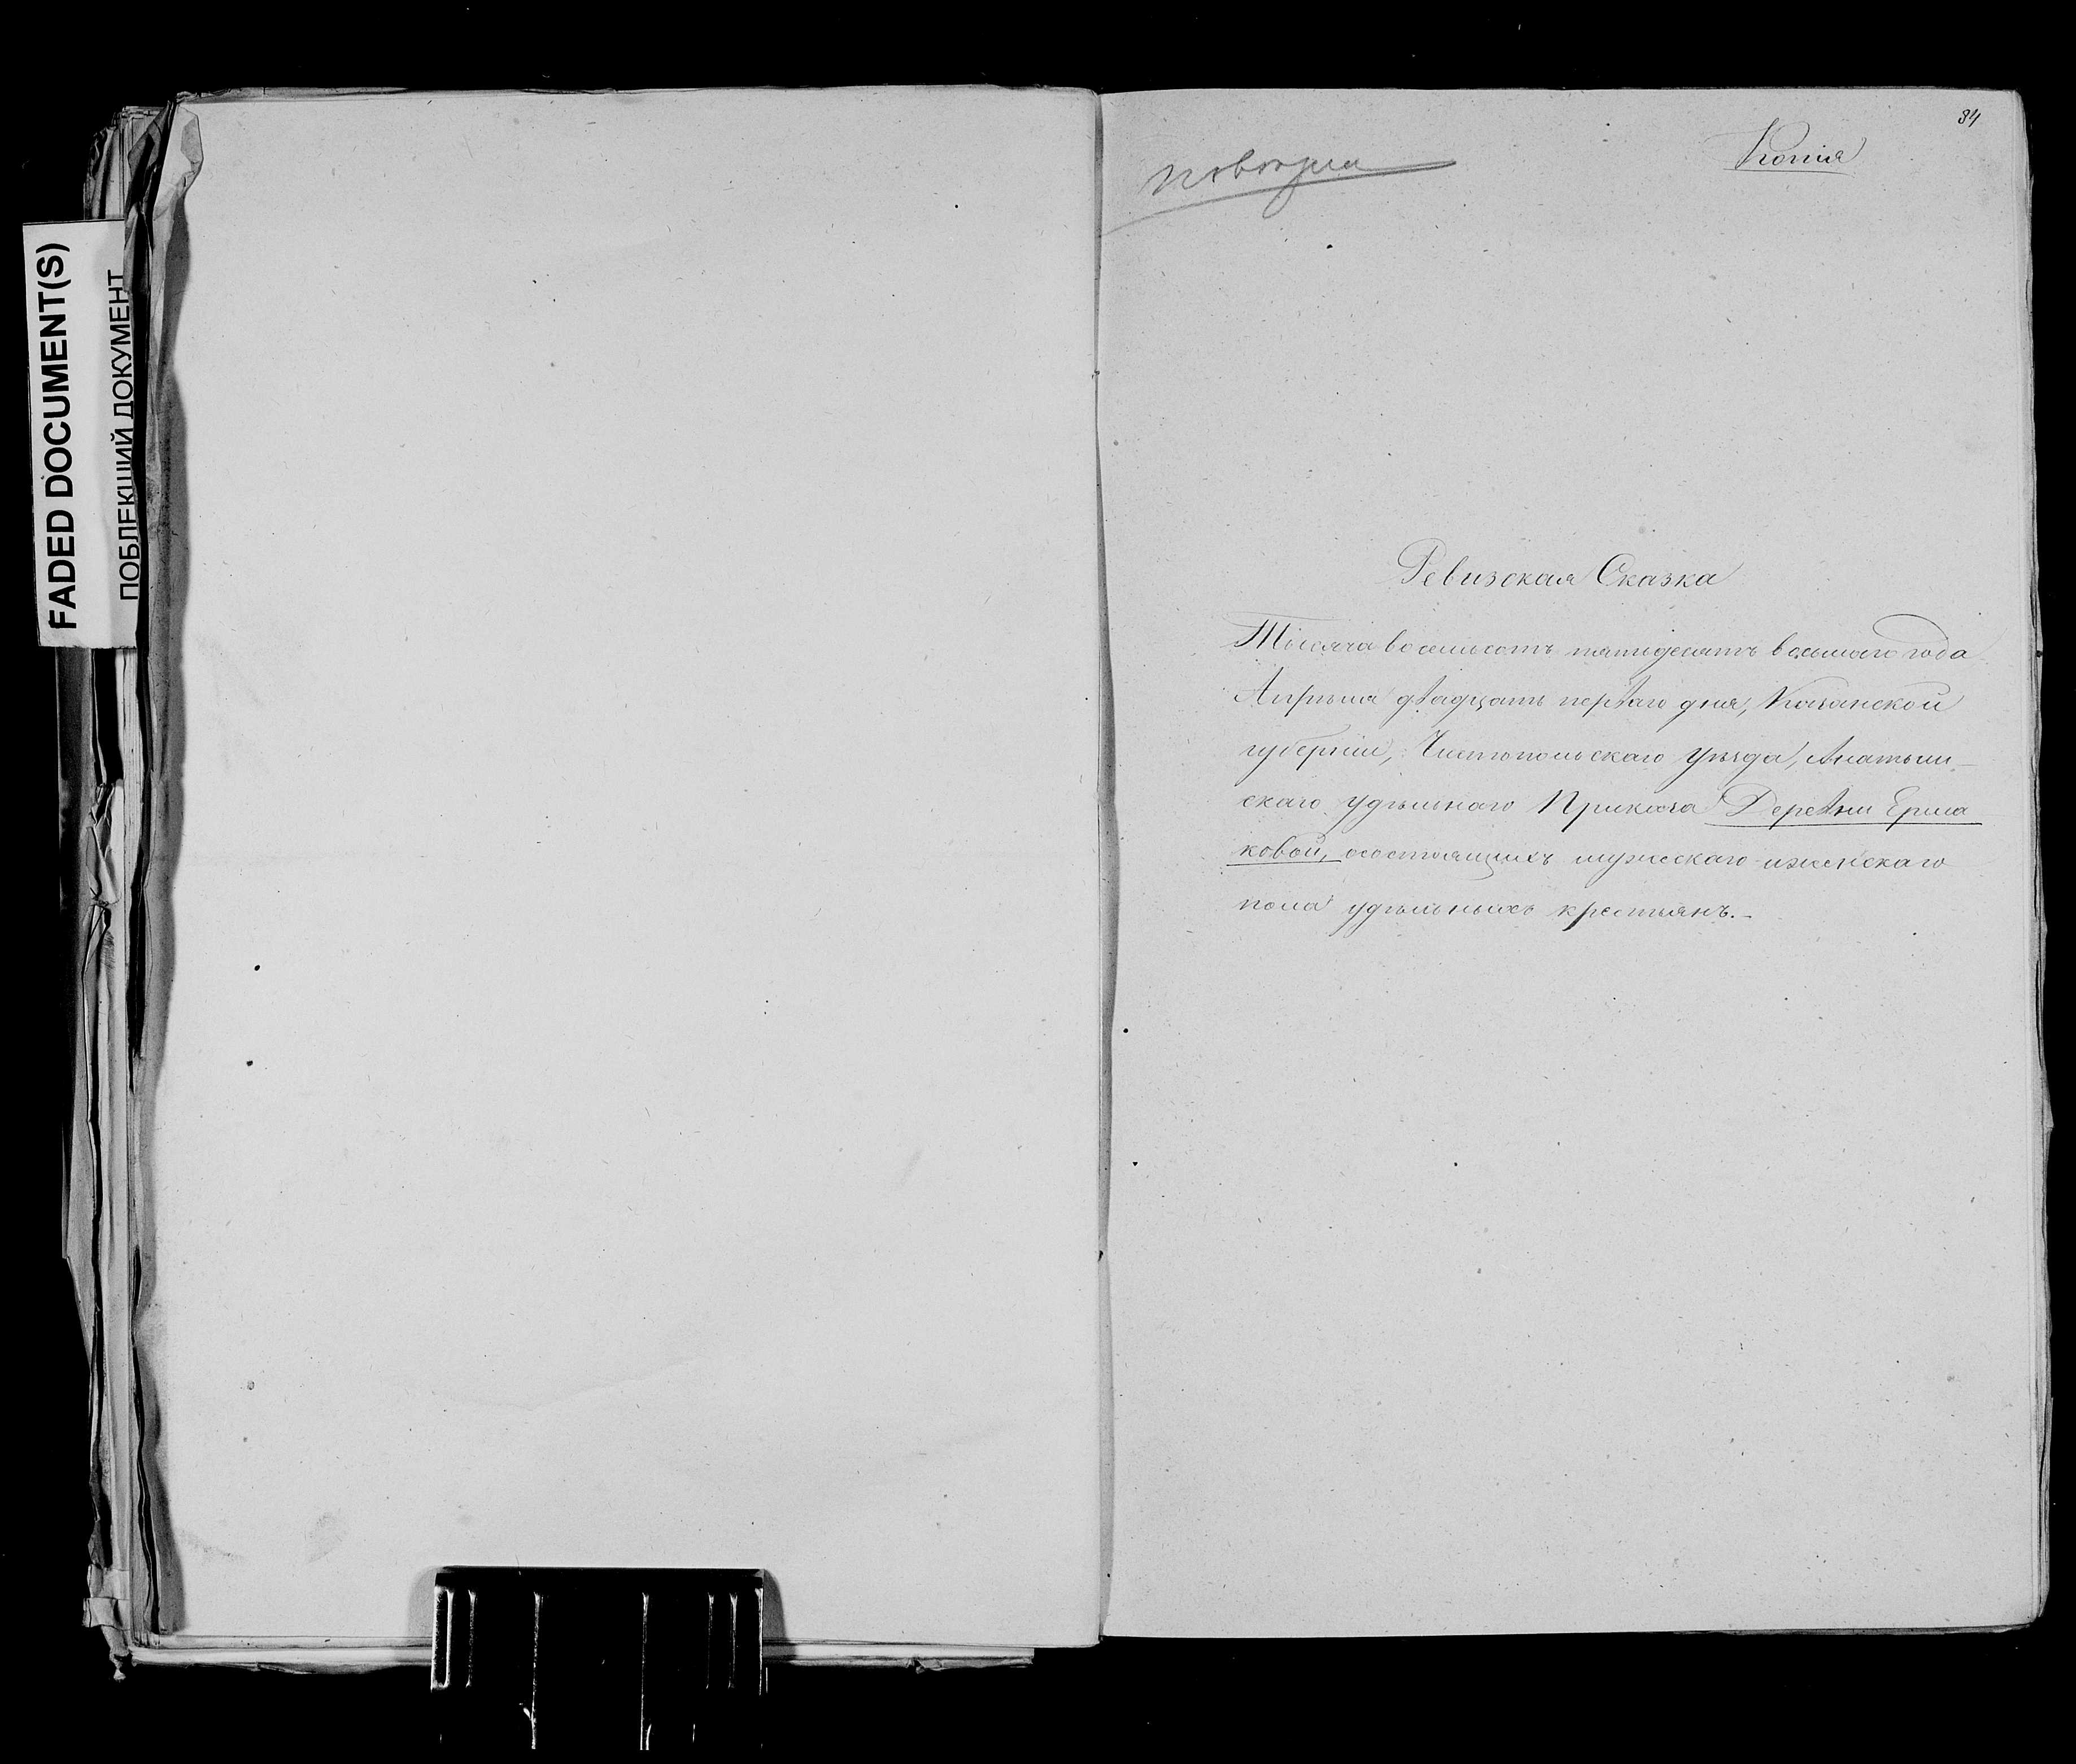 FADED DOCUMENT(S)
ПОБЛЕКШИЙ ДОКУМЕНТ
84
Копія
Ревизская Сказка
Тысяча восемьсотъ пятидесятъ восьмаго года
Апрѣля двадцать перваго дня, Казанской
губерніи, Чистопольскаго уѣзда,
скаго удѣльнаго Приказа Деревни Ерма
ковой, осостоящихъ мужескаго и женскаго
пола удѣльныхъ крестьянъ.-